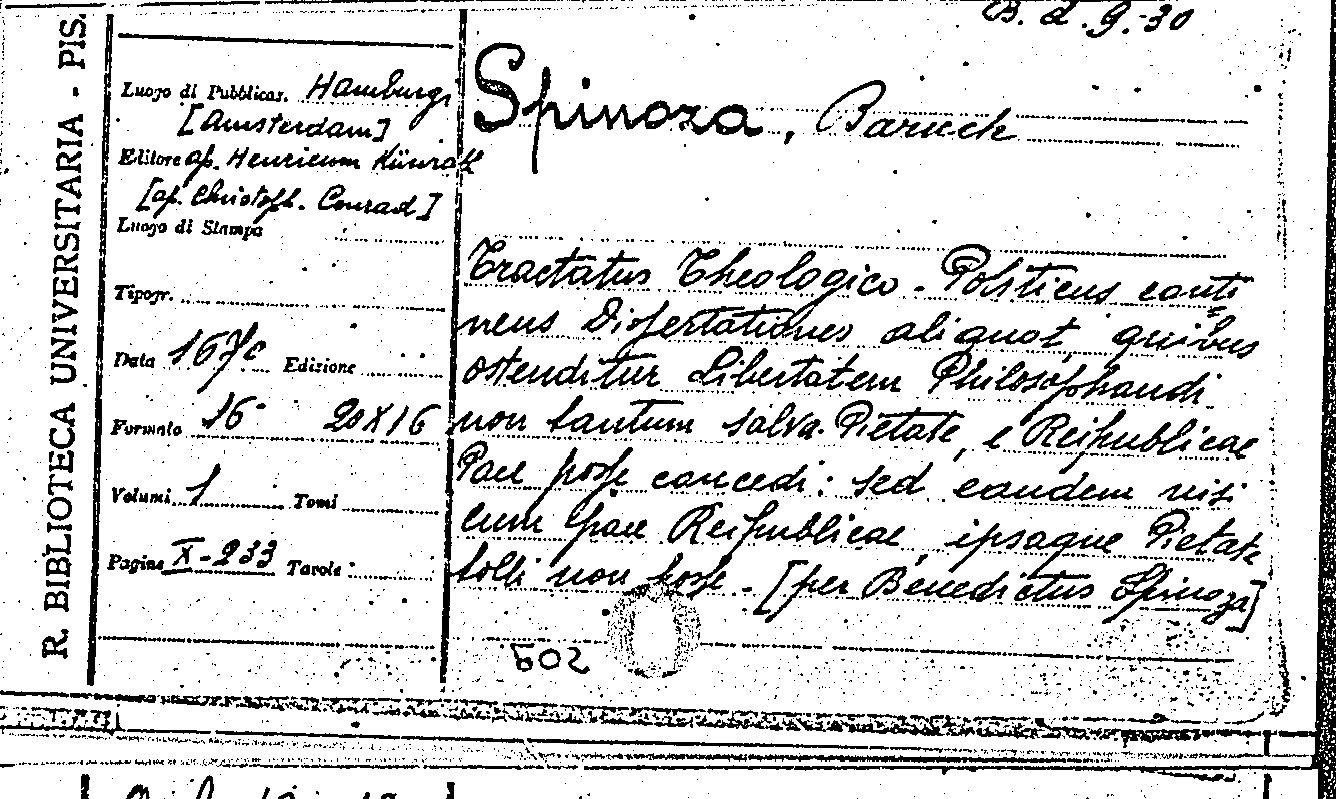 B. d. 9.-30
R. BIBLIOTECA UNIVERSITARIA - PIS.
Spinoza, Baruch
Luogo di Pubblicaz. Hamburgi
[Amsterdam]
Editore ap. Henricum Künrath
[ap. Christoph. Conrad]
Luogo di Stampa
Tipogr.
Data 1670 Edizione
Formato 16° 20X16
Volumi 1 Tomi
Pagine X-233 Tavole
Tractatus Theologico-Politicus conti
nens Dissertationes aliquot, quibus
ostenditur Libertatem Philosophandi
non tantum salva Pietate, e Reipublicae
Pace posse concedi: sed eandem nisi
cum pace Reipublicae, ipsaque Pietate
tolli non posse. [per Benedictus Spinoza]
602